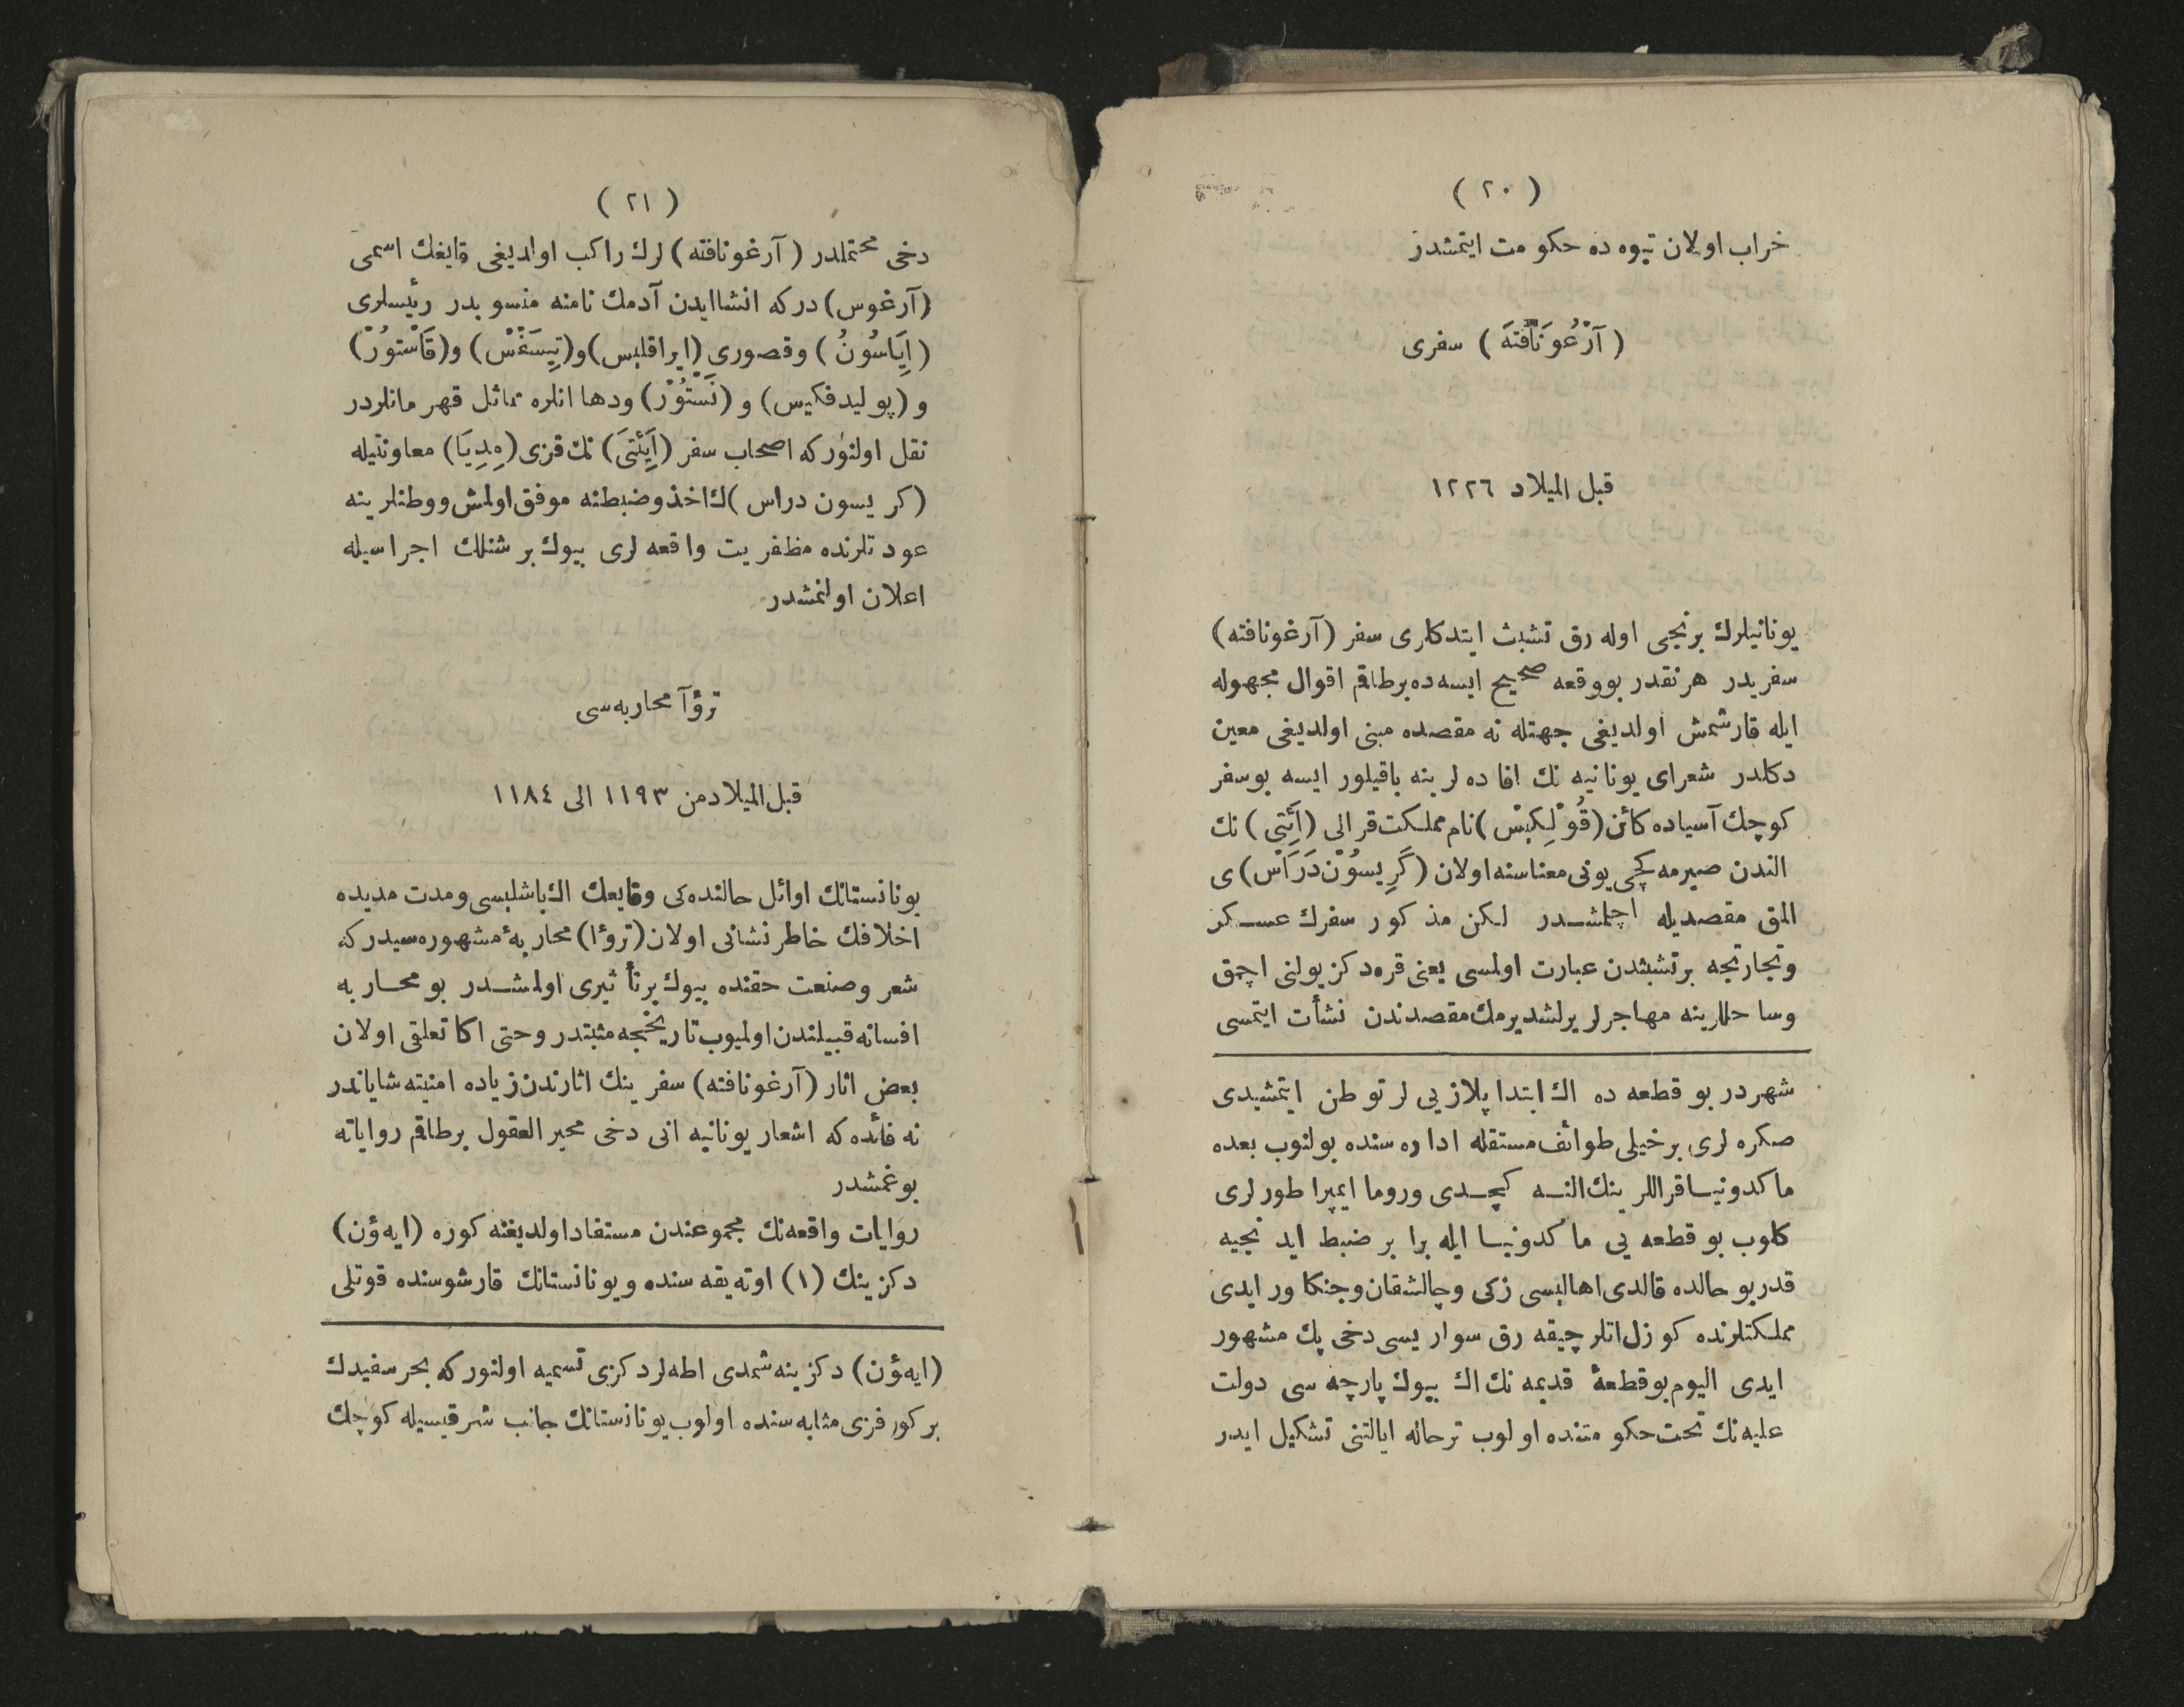 ( ٢٠ )
خراب اولان تیوه ده حکومت ایتمشدر
( آرْغُونَافْتَهَ ) سفری
قبل المیلاد ١٢٢٦
یونانیلرك برنجی اوله رق تشبث ایتدکلری سفر (آرغونافته)
سفریدر هر نقدر بووقعه صحیح ایسه ده برطاقم اقوال مجهوله
ایله قارشمش اولدیغی جهتله نه مقصده مبنی اولدیغی معین
دکلدر شعرای یونانیه نك افاده لرینه باقیلور ایسه بو سفر
کوچك آسیاده کائن (قُوْلِکیْسْ) نام مملکت قرالی (آَئِتِی) نك
الندن صیرمه کچی یونی معناسنه اولان (کَرِیسُوْن دَرَاْس) ی
المق مقصدیله اچلمشدر لکن مذکور سفرك عسکر
وتجارتجه برتشبثدن عبارت اولمسی یعنی قره دکز یولنی اچمق
وسا حللرینه مهاجرلر یرلشدیرمك مقصدندن نشأت ایتمسی
شهردر بو قطعه ده اك ابتدا پلازیی لر توطن ایتمشیدی
صکره لری برخیلی طوائف مستقله اداره سنده بولنوب بعده
ماکدونیا قراللرینك النه کچدی وروما ایمپراطورلری
کلوب بو قطعه یی ماکدونیا ایله برابر ضبط ایدنجیه
قدر بو حالده قالدی اهالیسی زکی وچالشقان وجنکاور ایدی
مملکتلرنده کوزل اتلر چیقه رق سواریسی دخی پك مشهور
ایدی الیوم بو قطعهٔ قدیمه نك اك بیوك پارچه سی دولت
علیه نك تحت حکومتنده اولوب ترحاله ایالتنی تشکیل ایدر
( ٢١ )
دخی محتملدر (آرغونافته) لرك راکب اولدیغی قایغك اسمی
(آرغوس) درکه انشا ایدن آدمك نامنه منسوبدر رئیسلری
(اِیَاسُونُ) وقصوری (ایراقلیس) و(تِیسَغْسْ) و(قَاسْتُوْرْ)
و (پولیدفکیس) و (نَسْتُوْرْ) ودها انلره مماثل قهرمانلردر
نقل اولنورکه اصحاب سفر (آَیِئْتِیَ) نك قزی (مِدِیَا) معاونتیله
(کریسون دراس) ك اخذ وضبطنه موفق اولمش ووطنلرینه
عودتلرنده مظفریت واقعه لری بیوك بر شنلك اجراسیله
اعلان اولنمشدر
ترؤآ محاربه سی
قبل المیلاد من ١١٩٣ الی ١١٨٤
یونانستانك اوائل حالنده کی وقایعك اك باشلیسی ومدت مدیده
اخلافك خاطر نشانی اولان (ترؤا) محاربهٔ مشهوره سیدرکه
شعر وصنعت حقنده بیوك برتأثیری اولمشدر بو محاربه
افسانه قبیلندن اولمیوب تاریخجه مثبتدر وحتی اکا تعلقی اولان
بعض اثار (آرغونافته) سفرینك اثارندن زیاده امنیته شایاندر
نه فائده که اشعار یونانیه انی دخی محیر العقول برطاقم روایاته
بوغمشدر
روایات واقعه نك مجموعندن مستفاد اولدیغنه کوره (ایه ؤن)
دکزینك (١) اوته یقه سنده ویونانستانك قارشوسنده قوتلی
(ایه ؤن) دکزینه شمدی اطه لر دکزی تسمیه اولنورکه بحر سفیدك
بر کورفزی مثابه سنده اولوب یونانستانك جانب شرقیسیله کوچك